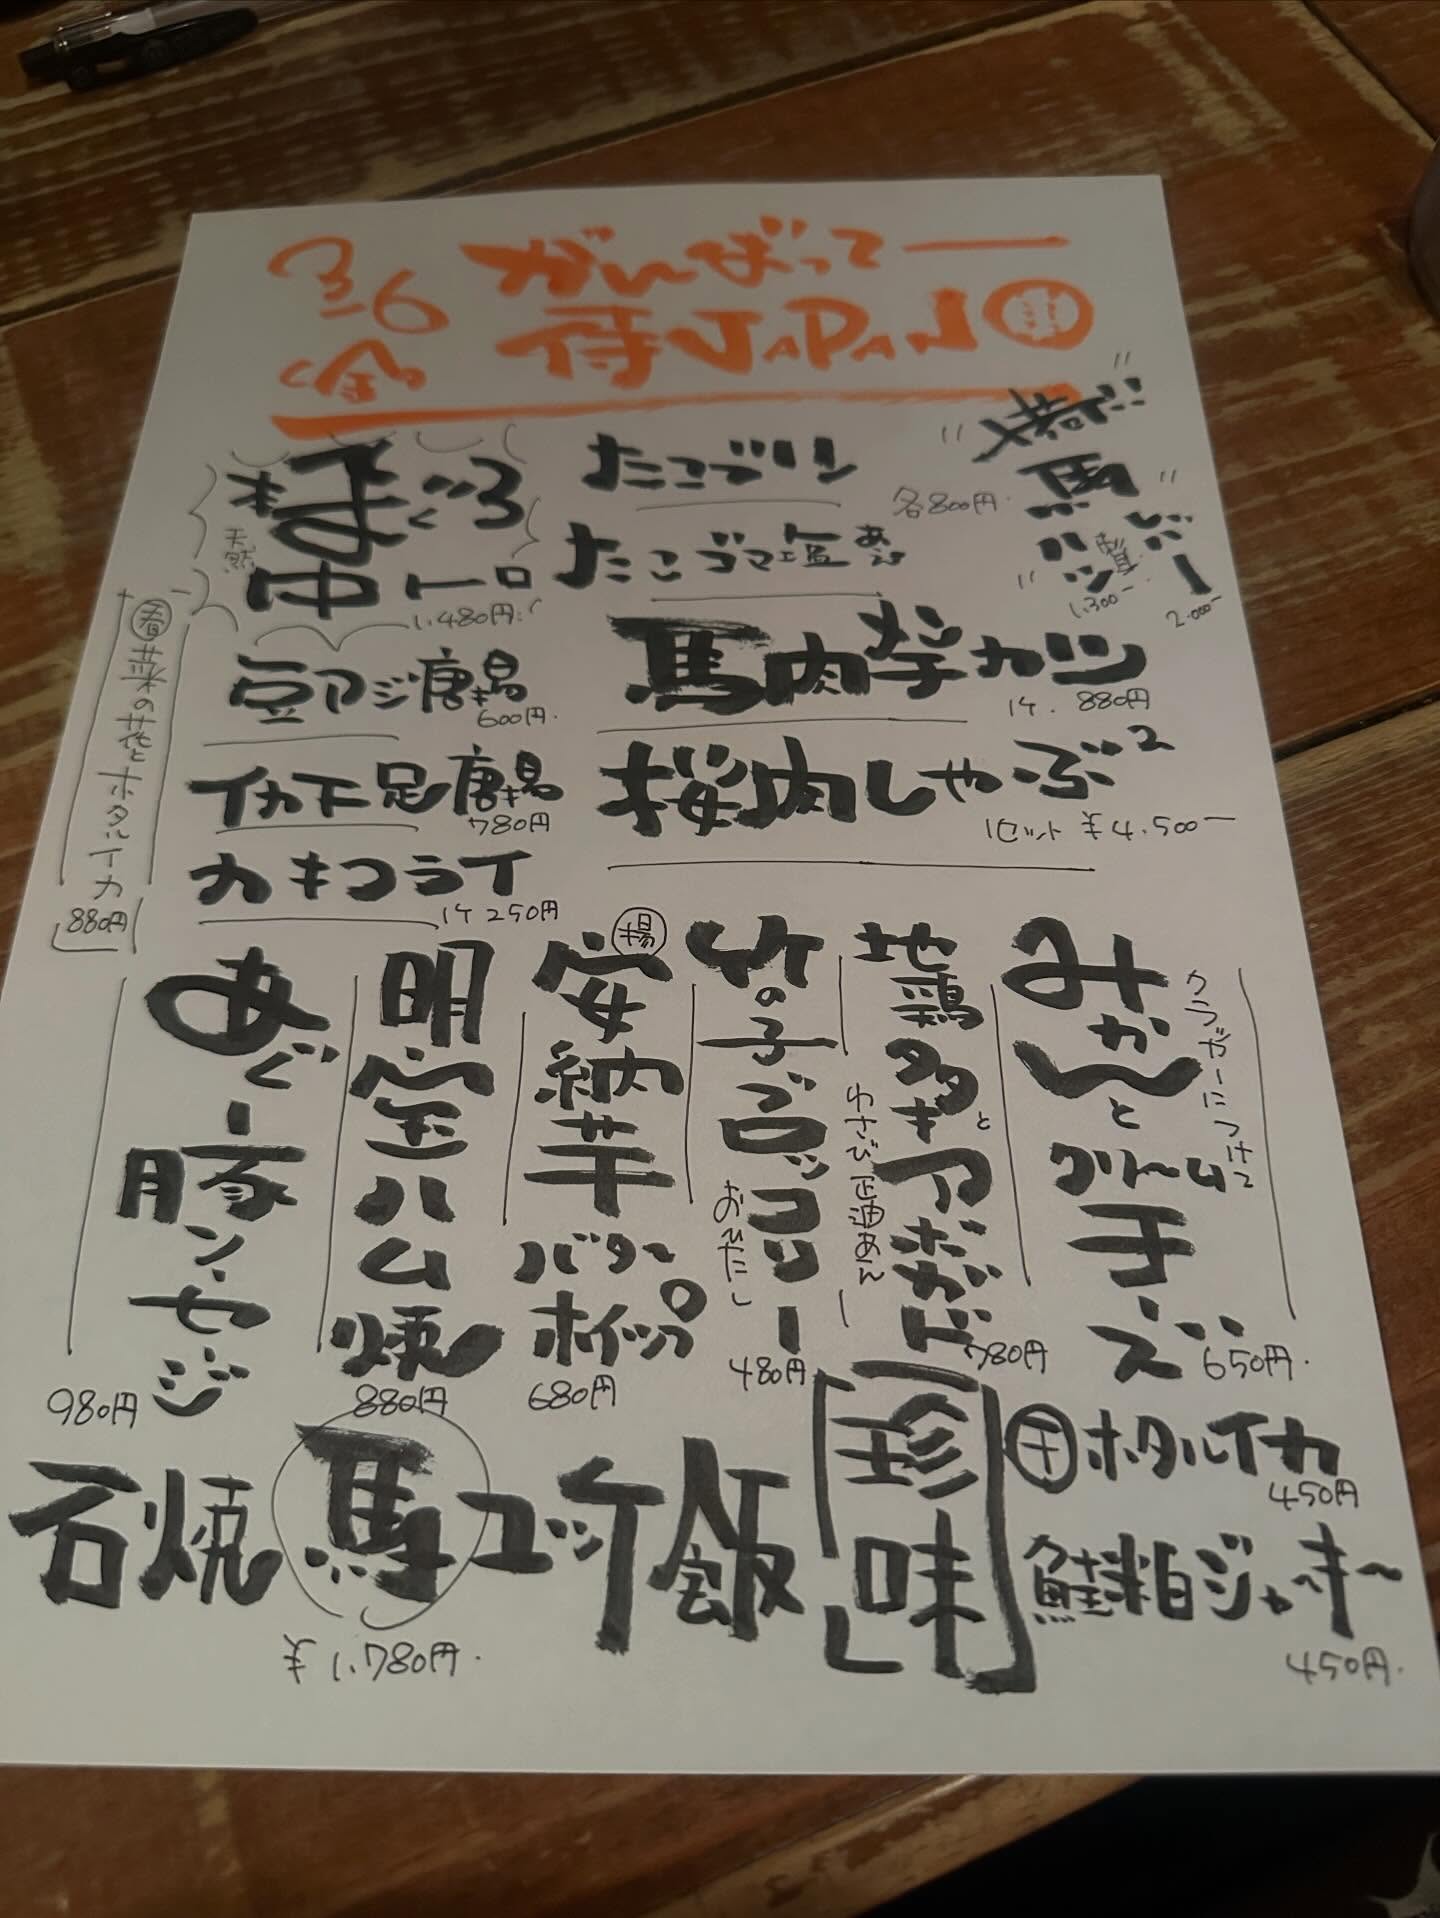 3-6
(金)
がんばってー
侍JAPAN
本まぐろ
天然
中トロ
1,480円
たこブツ
たこゴマ塩あえ
各800円
馬
レバー
ハツ
1,300-
2,000-
春菜の花とホタルイカ
880円
豆アジ唐揚
600円
イカ下足唐揚
780円
カキフライ
1ケ250円
馬肉メンチカツ
1ケ 880円
桜肉しゃぶ2
1セット ¥4,500-
みかんとクリームチーズ
クラッカーにつけて
650円
地鶏タタキとアボガド
わさび正油あん
780円
竹の子ブロッコリー
おひたし
480円
揚
安納芋バターホイップ
680円
明宝ハム焼
880円
あぐー豚ソーセージ
980円
石焼馬ユッケ飯
¥1,780円
珍味
干ホタルイカ
450円
鮭粕ジャーキー
450円